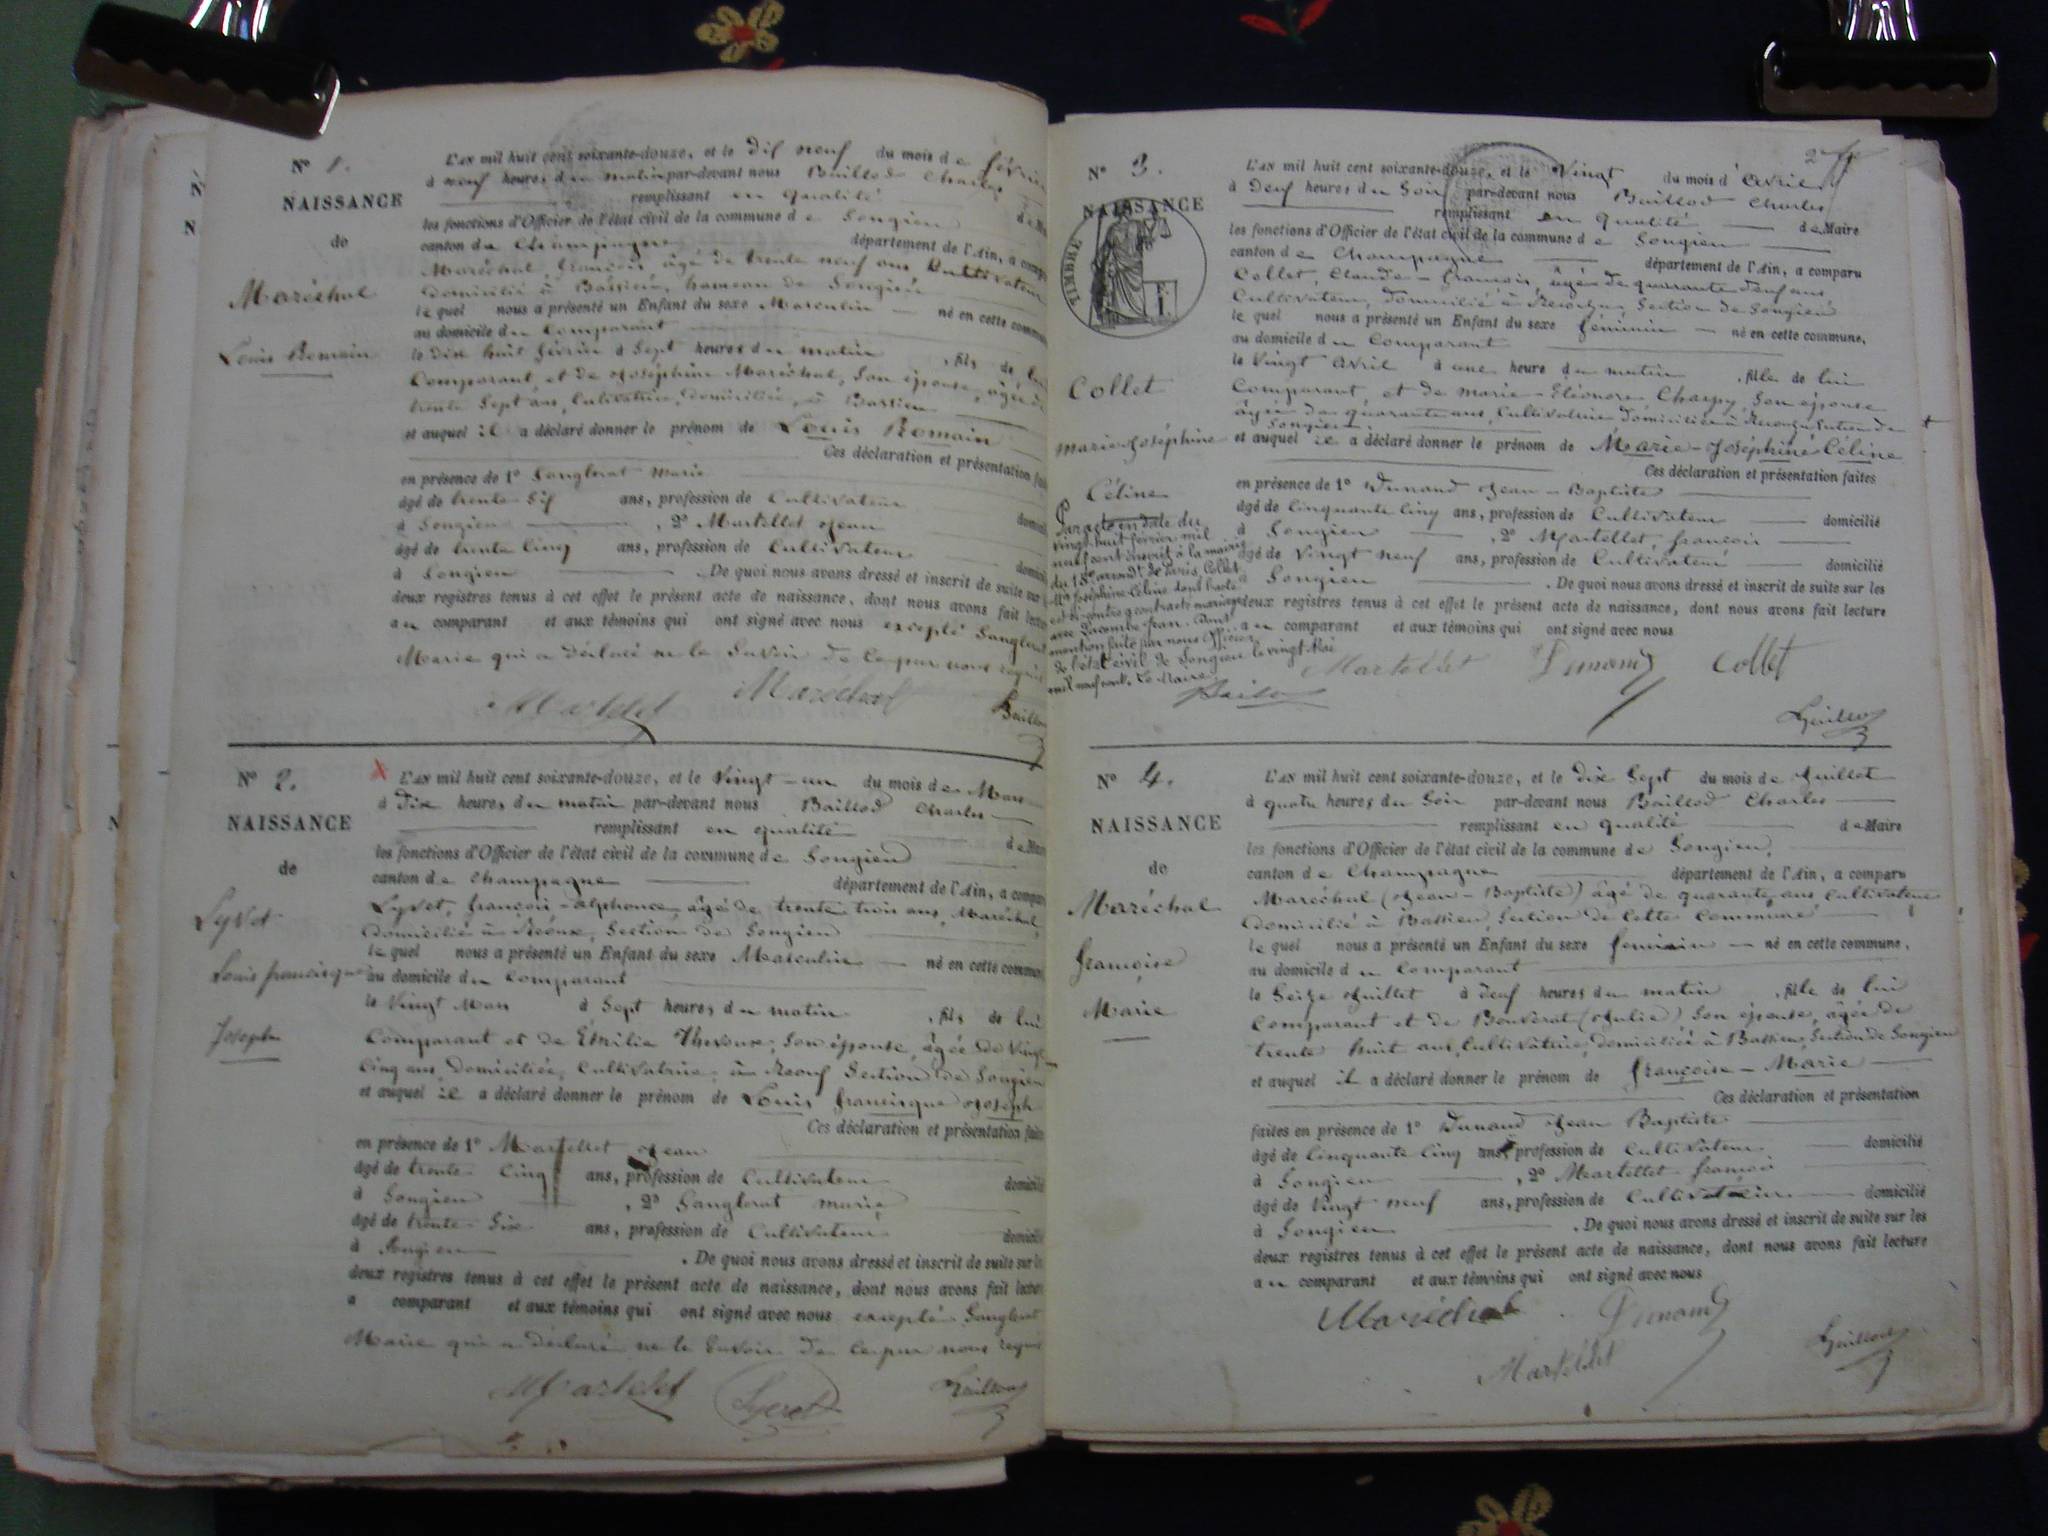 N° 1.
NAISSANCE
de
Maréchal
Louis Romain
L'AN mil huit cent soixante-douze, et le dif neuf du mois de février
à neuf heures du matin par-devant nous Baillod Charles
remplissant en qualité de
les fonctions d'Officier de l'état civil de la commune de Songieu
canton de Champagne département de l'Ain, a
Maréchal, françois, âgé de trente neuf ans, Cultivateur
domicilié à Bassieu, hameau de Songieu
le quel nous a présenté un Enfant du sexe Masculin né en cette
au domicile du Comparant
le dix huit février à Sept heures du matin , fils de lui
Comparant, et de Joséphine Maréchal, Son épouse, âgée de
trente Sept ans, Cultivatrice, domiciliée, à Bassieu
et auquel il a déclaré donner le prénom de Louis Romain
Ces déclaration et présentation
en présence de 1° Sanglerat Marie
âgé de trente-Sif ans, profession de Cultivateur
à Songieu , 2° Martellet Jean
âgé de trente Cinq ans, profession de Cultivateur
à Songieu . De quoi nous avons dressé et inscrit de suite sur
deux registres tenus à cet effet le présent acte de naissance, dont nous avons fait
au comparant et aux témoins qui ont signé avec nous excepté Sanglerat
Marie qui a déclaré ne le Savoir de ce par nous
Martellet Maréchal Baillod
N° 2.
NAISSANCE
de
Lyvet
Louis francisque
Joseph
L'AN mil huit cent soixante-douze, et le Vingt-un du mois de Mars
à Dix heures du matin par-devant nous Baillod Charles
remplissant en qualité de
les fonctions d'Officier de l'état civil de la commune de Songieu
canton de Champagne département de l'Ain, a
Lyvet, françois-alphonce, âgé de trente trois ans, Maréchal,
domicilié à , Section de Songieu
le quel nous a présenté un Enfant du sexe Masculin né en cette
au domicile du Comparant
le Vingt Mars à Sept heures du matin , fils de lui
Comparant et de Emilie , Son épouse, âgée de Vingt
Cinq ans, domiciliée, Cultivatrice, à Section de Songieu
et auquel il a déclaré donner le prénom de Louis francisque Joseph
Ces déclaration et présentation
en présence de 1° Martellet Jean
âgé de trente Cinq ans, profession de Cultivateur
à Songieu , 2° Sanglerat marie
âgé de trente-Six ans, profession de Cultivateur
à Songieu . De quoi nous avons dressé et inscrit de suite sur
deux registres tenus à cet effet le présent acte de naissance, dont nous avons fait
a comparant et aux témoins qui ont signé avec nous excepté Sanglerat
Marie qui a déclaré ne le Savoir de ce par nous
Martellet Lyvet Baillod
2
N° 3.
NAISSANCE
TIMBRE
Collet
Marie-Joséphine
Céline
Par acte en date du
vingt-huit février mil
neuf cent inscrit à la mairie
du 18e arrondt de Paris, Collet
Mie Joséphine Céline dont l'acte
est ci-contre a contracté mariage
avec Lacombe Jean. Dont
mention faite par nous Officier
de l'état civil de Songieu le vingt Mai
mil neuf cent. Le Maire
Baillod
L'AN mil huit cent soixante-douze, et le Vingt du mois d'avril
à Deuf heures du Soir par-devant nous Baillod Charles
remplissant en qualité de Maire
les fonctions d'Officier de l'état civil de la commune de Songieu
canton de Champagne département de l'Ain, a comparu
Collet, Claude-françois, âgé de quarante deuf ans
Cultivateur, domicilié à , Section de Songieu
le quel nous a présenté un Enfant du sexe féminin né en cette commune,
au domicile du Comparant
le Vingt avril à une heure du matin , fille de lui
Comparant, et de marie-Eléonore Charpy, Son épouse
âgée de quarante ans, Cultivatrice domiciliée à Section de
Songieu
et auquel il a déclaré donner le prénom de Marie-Joséphine Céline
Ces déclaration et présentation faites
en présence de 1° Dunand Jean-Baptiste
âgé de cinquante cinq ans, profession de Cultivateur domicilié
à Songieu , 2° Martellet, françois
âgé de Vingt neuf ans, profession de Cultivateur domicilié
à Songieu . De quoi nous avons dressé et inscrit de suite sur les
deux registres tenus à cet effet le présent acte de naissance, dont nous avons fait lecture
au comparant et aux témoins qui ont signé avec nous
Martellet Dunand Collet
Baillod
N° 4.
NAISSANCE
de
Maréchal
françoise
Marie
L'AN mil huit cent soixante-douze, et le dix Sept du mois de Juillet
à quatre heures du Soir par-devant nous Baillod Charles
remplissant en qualité de Maire
les fonctions d'Officier de l'état civil de la commune de Songieu,
canton de Champagne département de l'Ain, a comparu
Maréchal (Jean-Baptiste) âgé de quarante ans Cultivateur
domicilié à Bassieu, Section de Cette Commune
le quel nous a présenté un Enfant du sexe feminin né en cette commune,
au domicile du Comparant
le Seize Juillet à deuf heures du matin , fille de lui
Comparant et de Bouverat (Julie) Son épouse, âgée de
trente huit ans, Cultivatrice, domiciliée à Bassieu, Section de Songieu
et auquel il a déclaré donner le prénom de françoise-Marie
Ces déclaration et présentation
faites en présence de 1° Dunand Jean Baptiste
âgé de Cinquante Cinq ans, profession de Cultivateur domicilié
à Songieu , 2° Martellet françois
âgé de Vingt neuf ans, profession de Cultivateur domicilié
à Songieu . De quoi nous avons dressé et inscrit de suite sur les
deux registres tenus à cet effet le présent acte de naissance, dont nous avons fait lecture
au comparant et aux témoins qui ont signé avec nous
Maréchal Dunand
Martellet Baillod